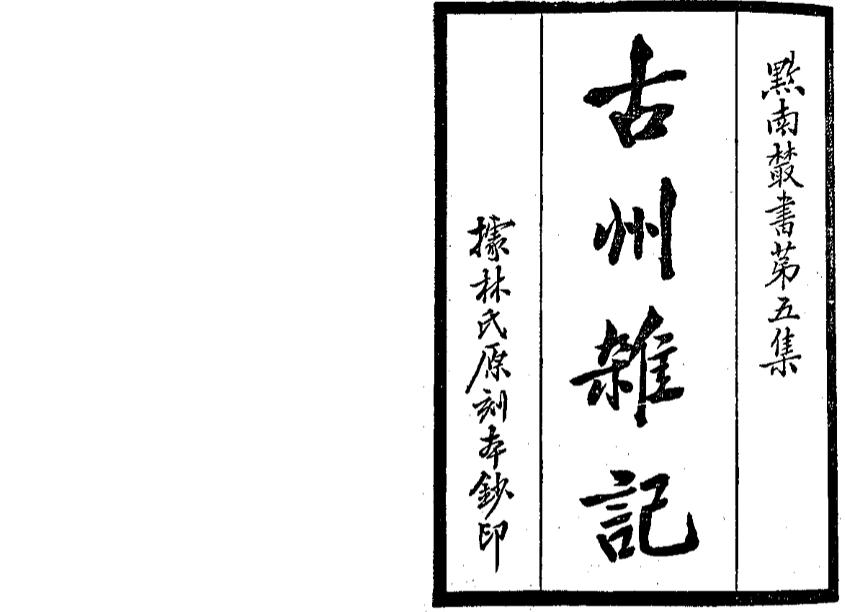 黔南叢書第五集
古州雜記
據林氏原刻本鈔印